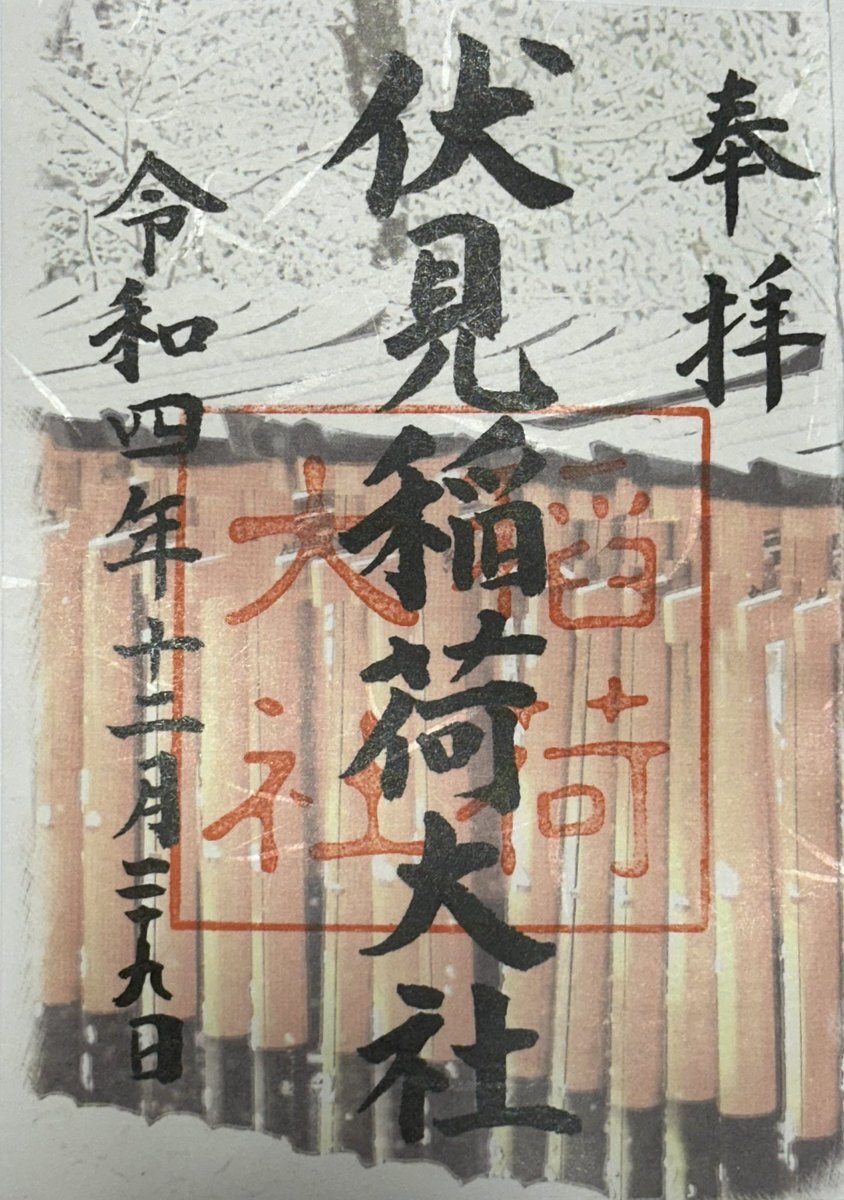 奉拝
伏見稲荷大社
稲荷
大社
令和四年十二月二十九日